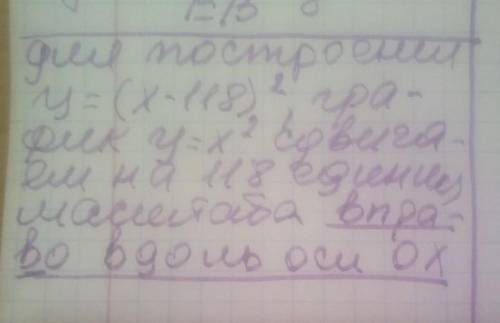 для построения
y=(x-118)², гра-
фик y=x² сдвига-
ем на 118 единиц
масштаба впра-
во вдоль оси OX